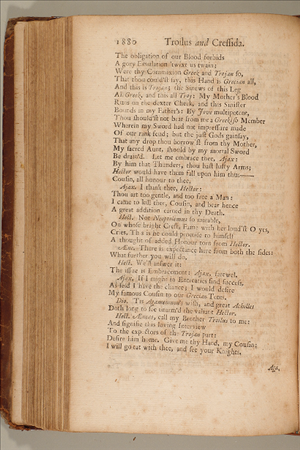 1880 Troilus and Cressida.
The obligation of our Blood forbids
A gory Emulation 'twixt us twain;
Were thy Commixtion Greek and Trojan so,
That thou could'st say, this Hand is Grecian all,
And this is Trojan; the Sinews of this Leg
All Greek, and this all Troy; My Mother's Blood
Runs on the dexter Cheek, and this Sinister
Bounds in my Father's: By Jove multipotent,
Thou should'st not bear from me a Greekish Member
Wherein my Sword had not impressure made
Of our rank feud; but the just Gods gainsay,
That any drop thou borrow'st from thy Mother,
My sacred Aunt, should by my mortal Sword
Be drain'd. Let me embrace thee, Ajax:
By him that Thunders, thou hast lusty Arms;
Hector would have them fall upon him thus——
Cousin, all honour to thee.
Ajax. I thank thee, Hector:
Thou art too gentle, and too free a Man:
I came to kill thee, Cousin, and bear hence
A great addition earned in thy Death.
Hect. Not Neoptolemus so mirable,
On whose bright Crest, Fame with her loud'st O yes,
Cries, This is he; could promise to himself
A thought of added Honour torn from Hector.
Æne. There is expectance here from both the sides:
What further you will do.
Hect. We'll answer it:
The issue is embracement: Ajax, farewel.
Ajax. If I might in Entreaties find success,
As seld I have the chance; I would desire
My famous Cousin to our Grecian Tents.
Dio. 'Tis Agamemnon's wish, and great Achilles
Doth long to see unarm'd the valiant Hector.
Hect. Æneas, call my Brother Troilus to me:
And signifie this loving Interview
To the expectors of the Trojan part:
Desire him home. Give me thy Hand, my Cousin:
I will go eat with thee, and see your Knights.